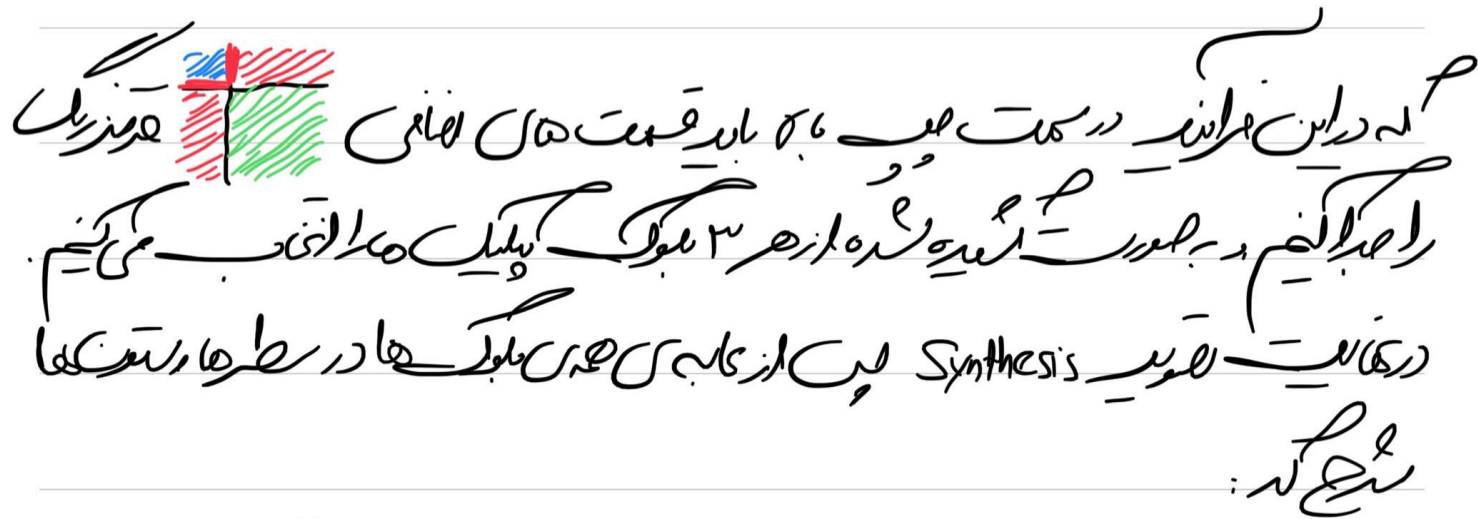 که در این فرآیند در سمت چپ بالا باید قسمت های اضافی قرمز رنگ
را جدا کنیم و به صورت شده از هر ۳ بلوک پیکسل ها را انتخاب می کنیم.
در نهایت تصویر Synthesis پس از محاسبه ی همه ی بلوک ها در سطرها و ستون ها
شرح کد: